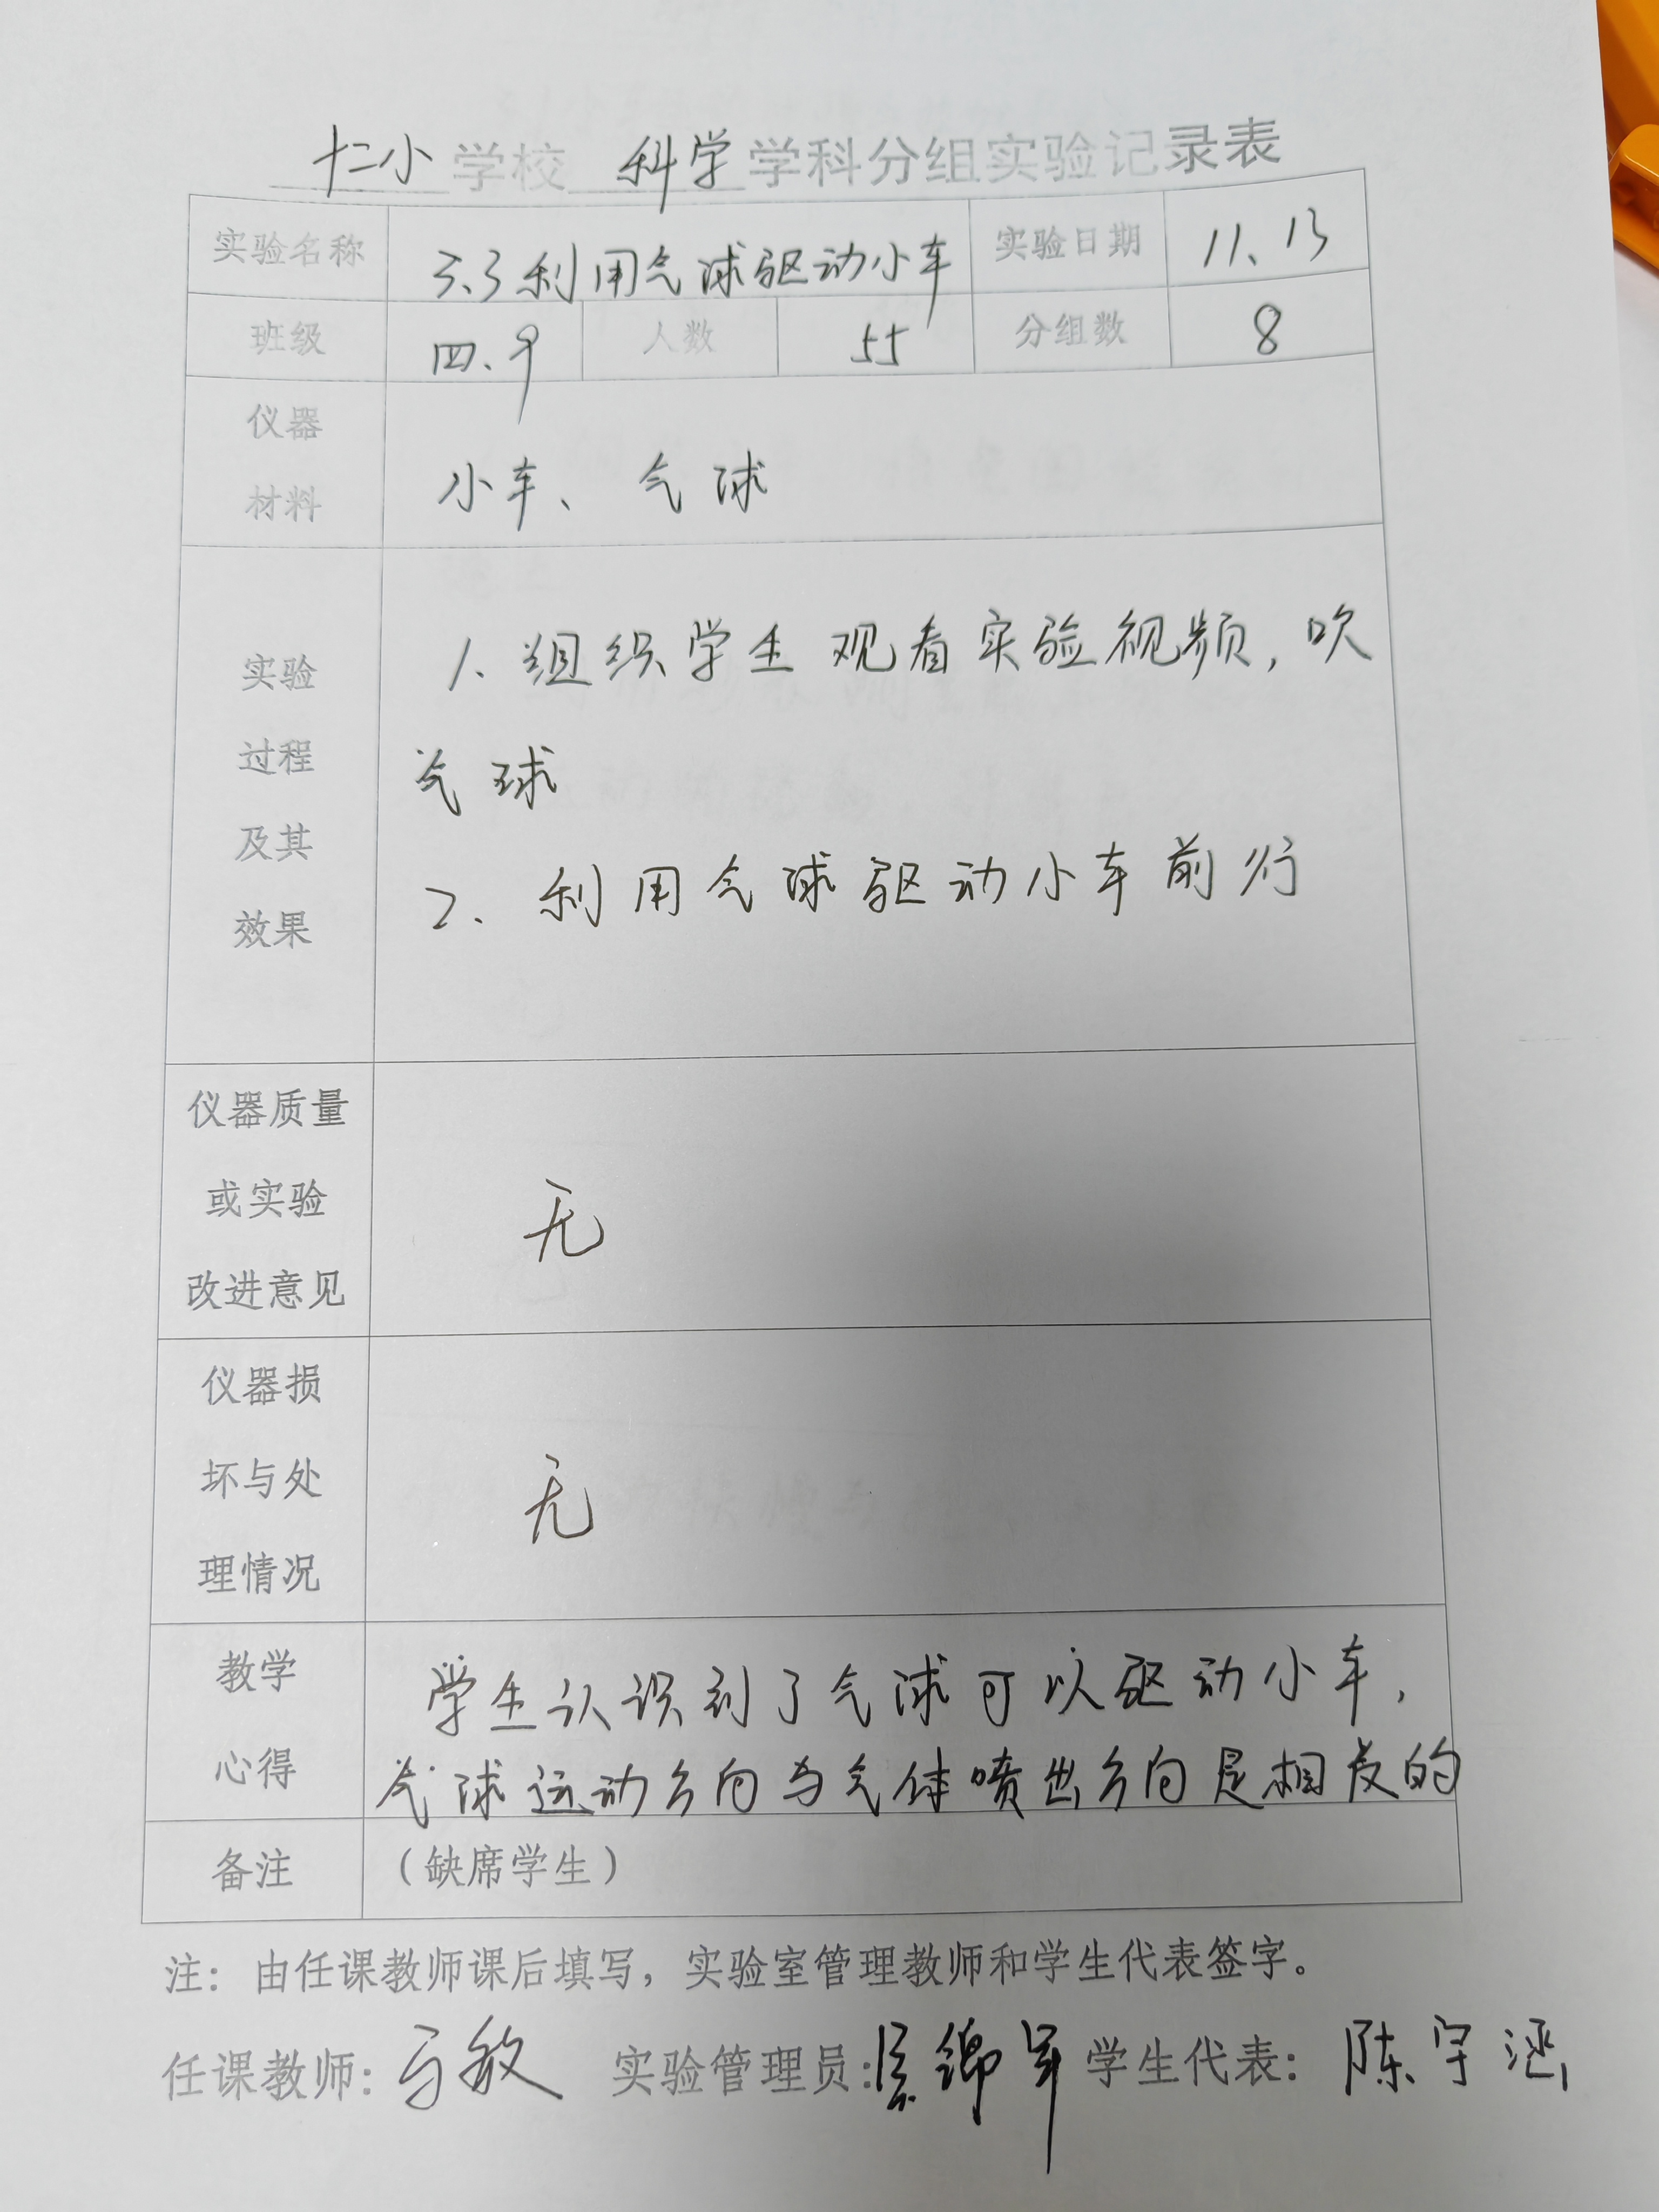 十二小学校 科学学科分组实验记录表
实验名称 3.3利用气球驱动小车 实验日期 11.13
班级 四.9 人数 55 分组数 8
仪器
材料
小车、气球
实验
过程
及其
效果
1.组织学生观看实验视频,吹
气球
2.利用气球驱动小车前行
仪器质量
或实验
改进意见
无
仪器损
坏与处
理情况
无
教学
心得
学生认识到了气球可以驱动小车,
气球运动方向与气体喷出方向是相反的
备注 (缺席学生)
注:由任课教师课后填写,实验室管理教师和学生代表签字。
任课教师:马敏 实验管理员: 学生代表:陈宇涵